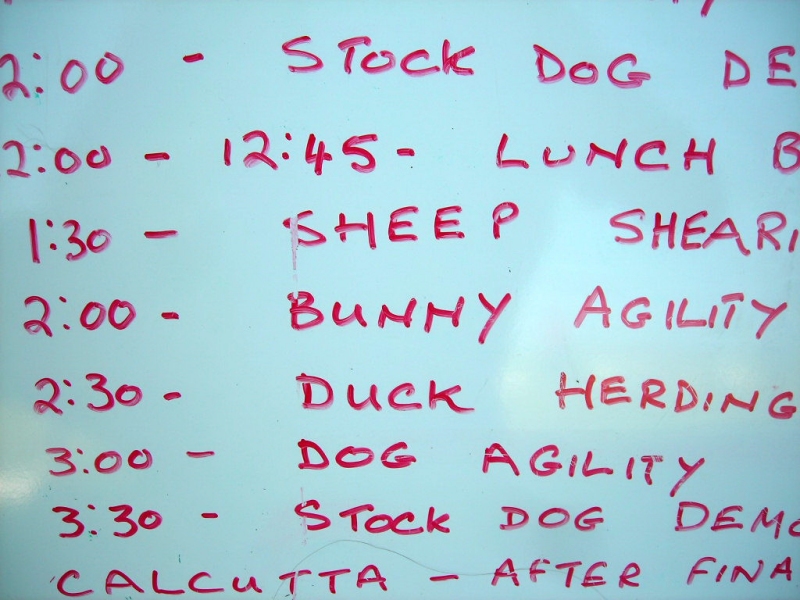 2:00 - STOCK DOG DE
2:00 - 12:45 - LUNCH B
1:30 - SHEEP SHEARI
2:00 - BUNNY AGILITY
2:30 - DUCK HERDING
3:00 - DOG AGILITY
3:30 - STOCK DOG DEMO
CALCUTTA - AFTER FINA